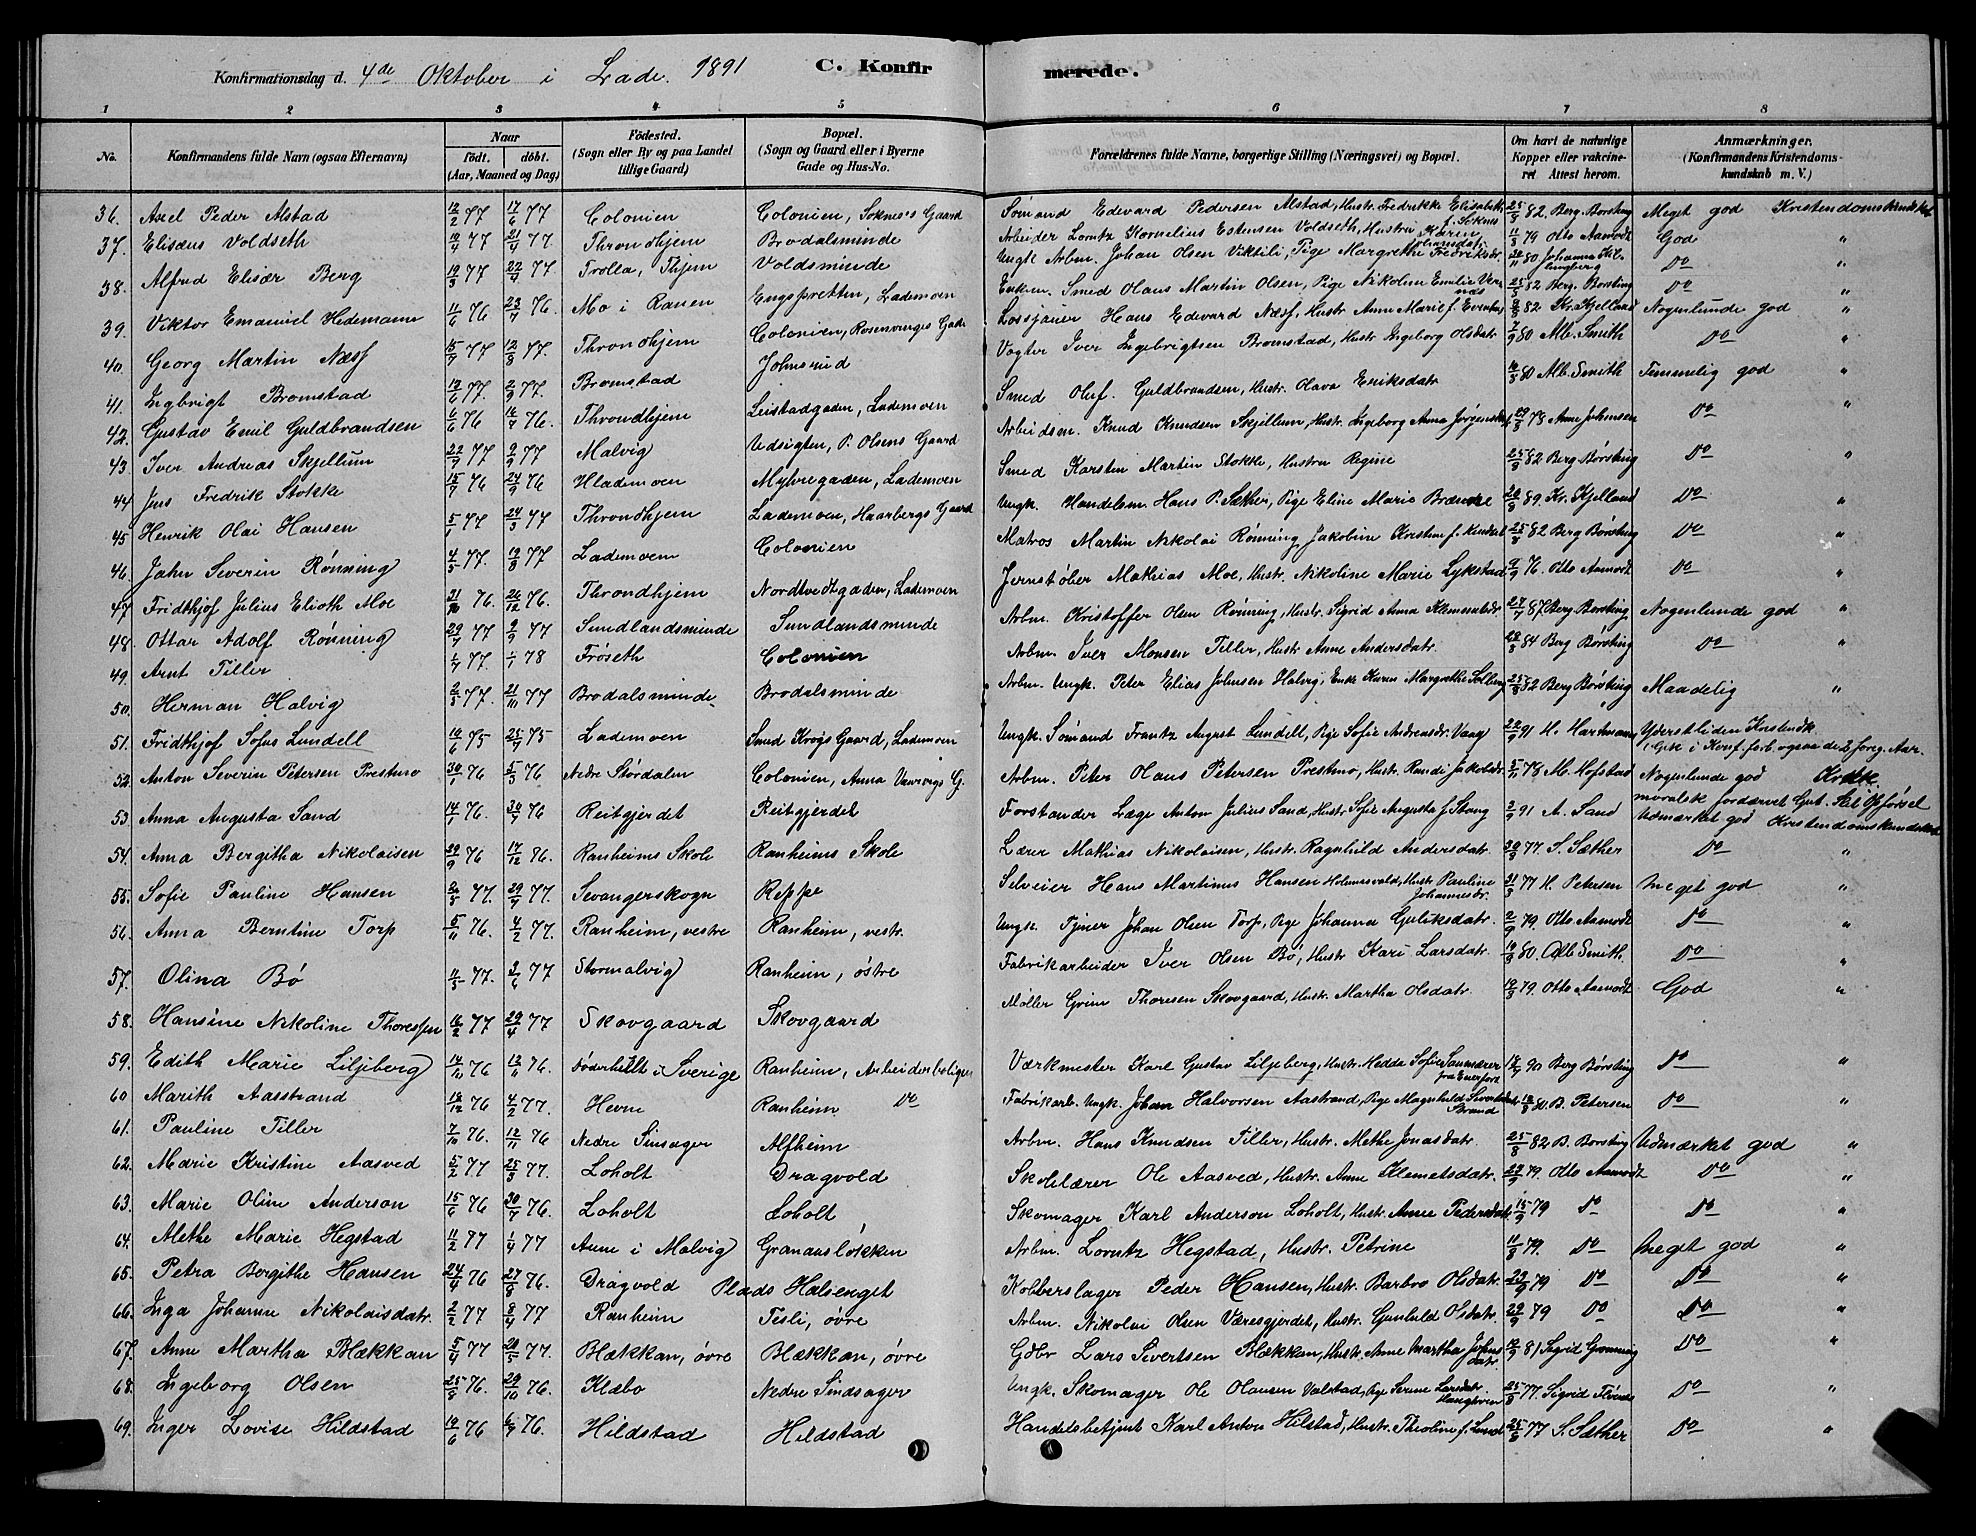 Konfirmationsdag d. 4de Oktober i Lade. 1891 C. Konfirmerede.
1 2 3 4 5 6 7 8
No. Konfirmandens fulde Navn (ogsaa Efternavn) Naar født. døbt. (Aar, Maaned og Dag) Födested. (Sogn eller By og paa Landet tillige Gaard) Bopæl. (Sogn og Gaard eller i Byerne Gade og Hus-No. Forældrenes fulde Navne, borgerlige Stilling (Næringsvei) og Bopæl. Om havt de naturlige Kopper eller vakcineret Attest herom. Anmærkninger. (Konfirmandens Kristendomskundskab m. V.)
36. Axel Peder Alstad 12/2 77 17/6 77 Colonien Colonien, Soknes's Gaard Sömand Edevard Pedersen Alstad, Hustr. Fredrikke Elisabeth f. Soknes 25/8 82 Berg. Borsting Meget god Kristendomskundskab
37. Elisæus Voldseth 77 21/4 77 Throndhjem Brodalsminde Arbeider Lorntz Kornelius Estensen Voldseth, Hustru Karen Johansdatr. 11/8 79 Otto Aamodt God "
38. Alfred Elisær Berg 10/3 77 22/4 77 Trolla, Thjem Voldsminde Ungk. Arbm. Johan Olsen Viktili, Pige Margrethe Fredriksdr. 80 Johanna Do "
39. Viktor Emanuel Hedemann 11/6 76 23/7 76. Mo i Ranen Engspretten, Lademoen Enkem. Smed Olaus Martin Olsen, Pige Nikoline Emilie 25/8 82 Berg. Borsting Do "
40. Georg Martin Næss 15/7 77 12/8 77. Throndhjem Colonien, Rosenvinges Gade Lossjaner Hans Edevard Næss, Hustr. Anne Marie f. 82 Kr. Kjelland Nogenlunde god "
41. Ingbrigt Bromstad 12/6 77. 2/9 77. Bromstad Johnsrud Vogter Iver Ingebrigtsen Bromstad, Hustr. Ingeborg Olsdatr 7/9 80 Alb. Smith Do "
42. Gustav Emil Guldbrandsen 6/6 76 16/7 76. Throndhjem Leistadgaden, Lademoen Smed Oluf. Guldbrandsen, Hustr. Olava Eriksdatr 80 Alb. Smith Temmelig god "
43. Iver Andreas Skjellum 22/7 77 2/9 77 Malvig Udsigten, P. Olsens Gaard Arbeidsm. Knud Knudsen Skjellum, Hustr. Ingeborg Anna Jørgensdatr. 78 Anne Johnsen Do "
44 Jens Fredrik Stokke 15/7 76 24/9 76 Hlademoen Myhregaden, Lademoen Smed Karsten Martin Stokke, Hustru Regine 25/8 82 Berg Børsting Do "
45 Henrik Olai Hansen 5/1 77 24/3 77 Throndhjem Lademoen, Haarbergs Gaard Ungk. Handelsm. Hans P. Sæther, Pige Eline Marie Brænne 89. Kr. Kjelland Do "
46. Jahn Severin Rønning 4/5 77. 19/8 77 Lademoen Colonien Matros Martin Nikolai Rønning, Jakobine Kirstine f. 25/8 82 Berg Børsting Do "
47. Fridthjof Julius Elioth Moe 21/10 76. 26/12 76. Throndhjem Nordtvedtgaden, Lademoen Jernstøber Mathias Moe, Hustr. Nikoline Marie Lykstad 76. Otto Aamodt Do "
48. Ottar Adolf Rønning 29/7 77 2/9 77 Sundlandsminde Sundlandsminde Arbm. Kristoffer Olsen Rønning, Hustr. Sigrid Anna Klemmetsdr. 27/7 87 Berg Børsting Nogenlunde god "
49. Arnt Tiller 1/7 77. 1/1 78 Frøseth Colonien Arbm. Iver Monsen Tiller, Hustr Anne Andersdatr. 28/8 84 Berg Børsting Do "
50. Herman Halvig 2/5 77. 21/10 77 Brodalsminde Brodalsminde Arbm. Ungk. Peter Elias Johnsen Halvig, Enke Karen Margrethe Solberg 25/8 82 Berg Børsting Maadelig "
51. Fridthjof Sofus Lundell 10/6 75 25/7 75 Lademoen Smed Krogs Gaard, Lademoen Ungk. Sömand Frantz August Lundell, Pige Sofie Andreasdr. Vang 22/9 91 H. Hartmann Yderstliden Kristendk.
i Konf. forb. ogsaa de 2 foreg. Aar.
52. Anton Severin Petersen Prestmo 30/1 76 5/3 76 Nedre Stördalen Colonien, Anna G. Arbm. Peter Olaus Petersen Prestmo, Hustr. Randi Jakobsdr. 5/11 78 M. Hofstad Nogenlunde god
moralsk fordærvet Gut.
53. Anna Augusta Sand 14/1 76. 30/7 76 Reitgjerdet Reitgjerdet Forstander Læge Anton Julius Sand, Hustr. Sofie Augusta f. Stang 2/9 91 A. Sand Udmærket god Kristendomskundskab
54. Anna Bergitha Nikolaisen 29/9 76 17/12 76. Ranheims Skole Ranheims Skole Lærer Mathias Nikolaisen, Hustr. Ragnhild Andersdatr. 77. S. Sæther Do "
55. Sofie Pauline Hansen 77. 29/7 77. Sevangerskogn Reppe Selveier Hans Martinus Hansen, Hustr Pauline Johannesdr. 77 H. Petersen Meget god "
56. Anna Berntine Torp 5/11 76. 4/2 77. Ranheim, vestre Ranheim, vestr. Ungk. Tjener Johan Olsen Torp, Pige Johanna Guliksdatr. 2/9 79. Otto Aamodt Do "
57. Olina Bö 4/5 77. 3/6 77 Stormalvig Ranheim, östre Fabrikarbeider Iver Olsen Bö, Hustr Kari Larsdatr. 80. Alb Smith. Do "
58. Hansine Nikoline Thoressen 16/2 77 29/4 77 Skovgaard Skovgaard Møller Grim Thoresen Skovgaard, Hustr. Martha Olsdatr. 79. Otto Aamodt God "
59. Edith Marie Liljeberg 14/10 76 12/11 76. i Sverige Ranheim, Arbeiderboliger Værkmester Karl Gustav Liljeberg, Hustr. Hedda Sofie 90 Berg Børsting Do "
60 Marith Aasstrand 18/12 76 4/2 77. Hevne Ranheim Do Fabrikarb. Ungk. Johan Halvorsen Aastrand, Pige Magnhild Strand 80. B. Petersen Do "
61. Pauline Tiller 7/10 76. 12/11 76 Nedre Sinsager Alfheim Arbm. Hans Knudsen Tiller, Hustr. Methe Jonasdatr. 25/8 82 B. Borsting Udmærket god "
62. Marie Kristine Aasved 5/2 77 25/3 77. Loholt Dragvold Skolelærer Ole Aasved, Hustr. Anne Klemetsdatr. 79. Otto Aamodt Do "
63. Marie Oline Anderson 15/6 76 30/7 76. Loholt Loholt Skomager Karl Anderson Loholt, Hustr. Anne Pedersdatr. 15/9 79 Do Do "
64. Methe Marie Hegstad 11/2 77 1/4 77 Aune i Malvig Granaasløkken Arbm. Lorntz Hegstad, Hustr. Petrine 11/8 79. Do Meget god "
65. Petra Bergithe Hansen 24/4 76 27/8 76. Dragvold Plads Halsenget Kobberslager Peder Hansen, Hustr. Barbro Olsdatr. 79 Do Do "
66. Inga Johanne Nikolaisdatr. 2/2 77 8/4 77 Ranheim Tesli, øvre Arbm. Nikolai Olsen Væresgjerdet, Hustr. Gunhild Olsdatr. 79 Do Do "
67. Anne Martha Blækkan 5/4 77 20/5 77. Blækkan, övre Blækkan, øvre Gdbr Lars Sivertsen Blækkan, Hustr. Anne Martha Johnsdatr. 81 Sigrid Grønning Do "
68. Ingeborg Olsen 25/8 76. 29/10 76. Klæbo Nedre Sindsager Ungk. Skomager Ole Olausen Valstad, Pige Serine Larsdatr. 25/8 77. Sigrid Do "
69. Inger Lovise Hildstad 10/6 76 76. Hildstad Hildstad Handelsbetjent Karl Anton Hilstad, Hustr. Theoline f. Lund 25/8 77 S. Sæther Do "